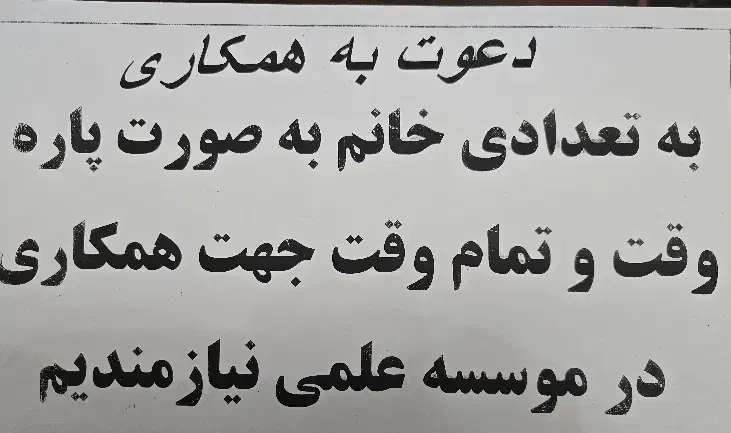 دعوت به همکاری
به تعدادی خانم به صورت پاره
وقت و تمام وقت جهت همکاری
در موسسه علمی نیازمندیم